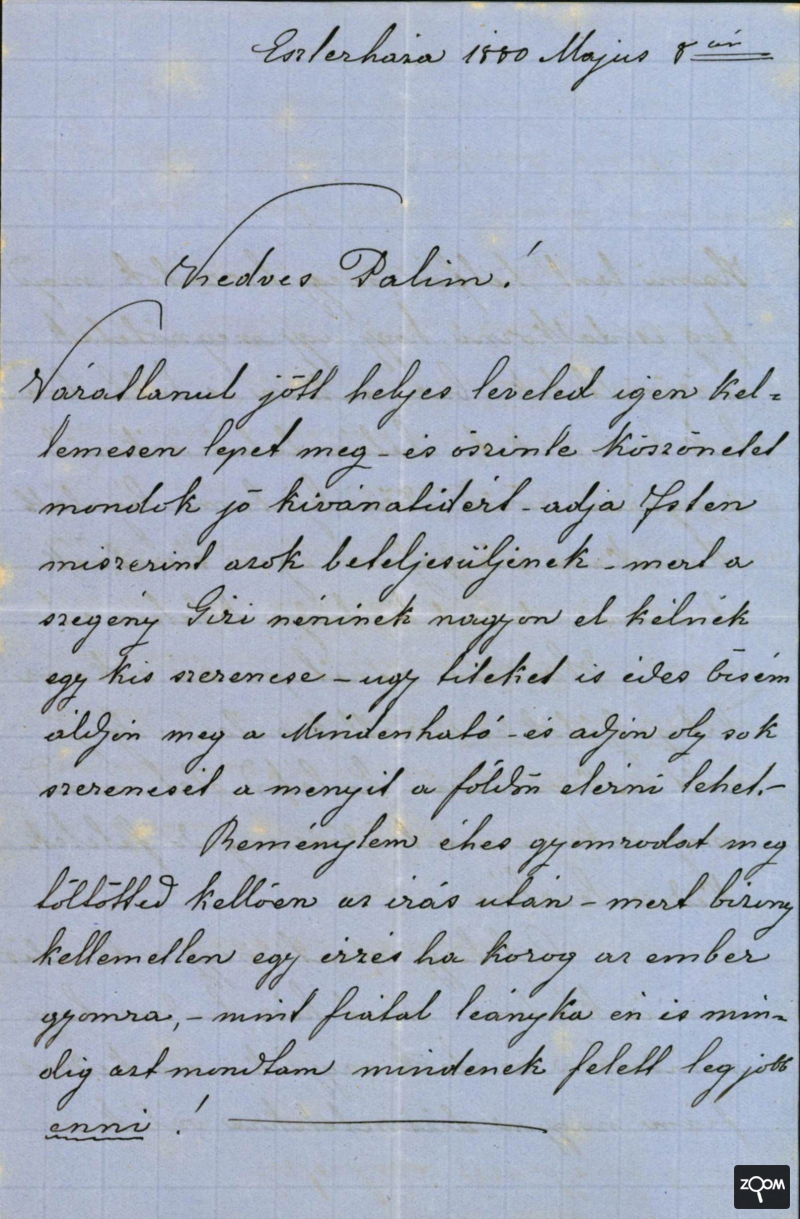 Eszterháza 1880 Majus 8án
Kedves Palim!
Váratlanul jött helyes leveled igen kel=
lemesen lepet meg – és öszinte köszönetet
mondok jó kivánatidért – adja Isten
miszerint azok beteljesüljenek – mert a
szegény Gizi néninek nagyon el kélnék
egy kis szerencse – ugy titeket is édes öcsém
áldjon meg a Mindenható – és adjon oly sok
szerencsét a menyit a földön elérni lehet. –
Reménylem éhes gyomrodat meg
töltötted kellöen az irás után – mert bizony
kellemetlen egy érzés ha korog az ember
gyomra, – mint fiatal leányka én is min=
dig azt mondtam mindenek felett leg jobb
enni!
ZOOM